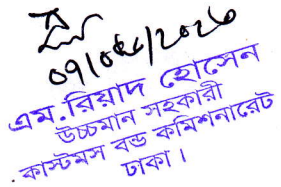 ০৭/০৫/২০২৩
এম.রিয়াদ হোসেন
উচ্চমান সহকারী
কাস্টমস বন্ড কমিশনারেট
ঢাকা।